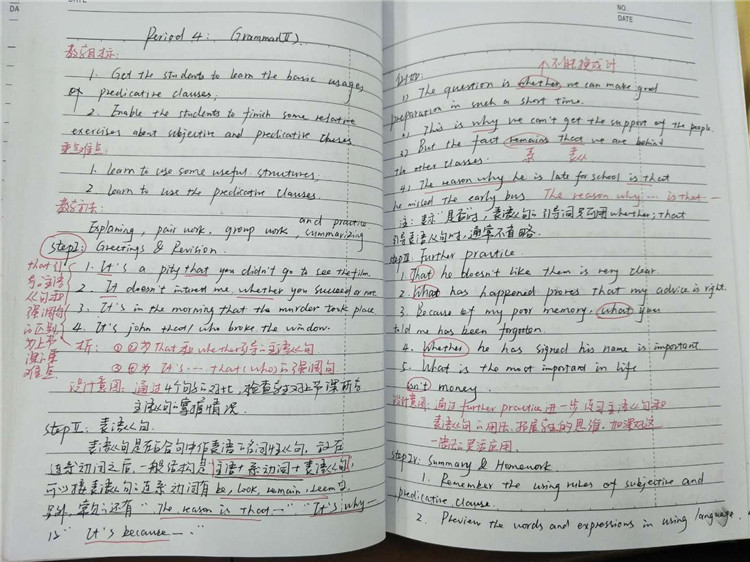 DA
DATE
Period 4: Grammar(Ⅱ)
教学目标:
1. Get the students to learn the basic usages
of predicative clauses;
2. Enable the students to finish some relative
exercises about subjective and predicative clauses
重难点:
1. Learn to use some useful structures;
2. Learn to use the predicative clauses.
教学方法:
and practice
Explaning, pair work, group work, summarizing
step I: Greetings & Revision.
1. It's a pity that you didn't go to see the film.
2. It doesn't interest me whether you succeed or not.
3. It's in the morning that the murder took place
4. It's john that/who broke the window.
that引
导主语
从句和
强调句
的区别
为上节
课的重
难点
析: ①②为that和whether引导的主语从句
③④为It's … that(who)的强调句
设计意图: 通过4个句子的对比, 检查学生对上节课所学
主语从句的掌握情况.
step Ⅱ: 表语从句.
表语从句是在复合句中作表语的名词性从句, 放在
连系动词之后, 一般结构是"主语+系动词+表语从句",
可以接表语从句的连系动词有be, look, remain, seem等
另外, 常句的还有"The reason is that—" "It's why—
is" It's because —."
NO.
DATE
不能换成if
1) The question is whether we can make good
preparation in such a short time.
2) This is why we can't get the support of the people.
3) But the fact remains that we are behind
the other classes.
系 表从
4) The reason why he is late for school is that
he missed the early bus. The reason why … is that —
注: 表示"是否"时, 表语从句的引导词只可用whether; that
引导表语从句时, 通常不省略.
step Ⅲ Further practice.
1. That he doesn't like them is very clear.
2. What has happened proves that my advice is right.
3. Because of my poor memory, what you
told me has been forgotten.
4. Whether he has signed his name is important
5. What is the most important in life
isn't money.
设计意图: 通过further practice进一步练习主语从句和
表语从句的用法, 拓展学生的思维, 加深对这
一语法的灵活应用.
step Ⅳ: Summary & Homework.
1. Remember the using rules of subjective and
predicative clause.
2. Preview the words and expressions in using language.